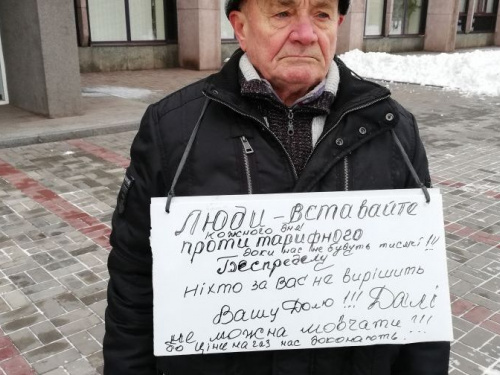 Люди - вставайте
кожного дня
проти тарифного
доки нас не будуть тисячі!!!
Беспределу
ніхто за вас не вирішить
Вашу Долю!!! Далі
не можна мовчати!!!
бо ціни на газ нас доконають...